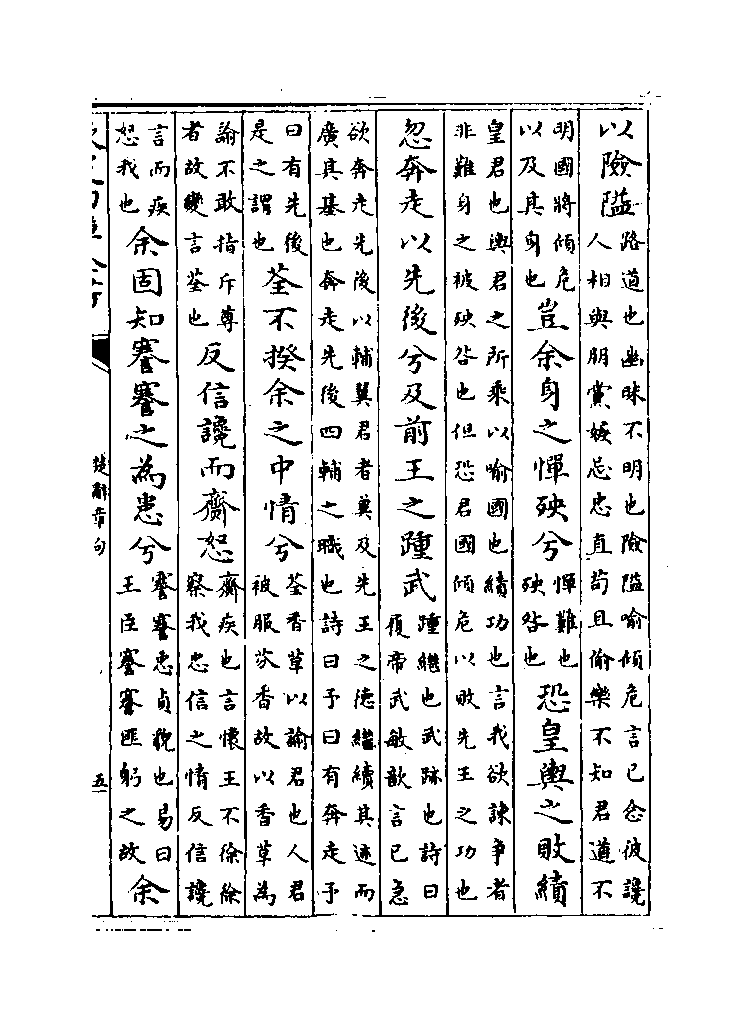 以險隘路道也幽昧不明也險隘喻傾危言已念彼讒人相與朋黨嫉忌忠直苟且偷樂不知君道不
明國將傾危以及其身也豈余身之憚殃兮憚難也殃咎也恐皇輿之敗績
皇君也輿君之所乘以喻國也績功也言我欲諫爭者非難身之被殃咎也但恐君國傾危以敗先王之功也
忽奔走以先後兮及前王之踵武踵繼也武跡也詩曰履帝武敏歆言已急
欲奔走先後以輔翼君者冀及先王之德繼續其迹而廣其基也奔走先後四輔之職也詩曰予曰有奔走予
曰有先後是之謂也荃不揆余之中情兮荃香草以諭君也人君被服芬香故以香草為
諭不敢指斥尊者故變言荃也反信讒而齌怒齌疾也言懷王不徐徐察我忠信之情反信讒
言而疾怒我也余固知謇謇之為患兮謇謇忠貞貌也易曰王臣謇謇匪躬之故余
楚辭章句
五